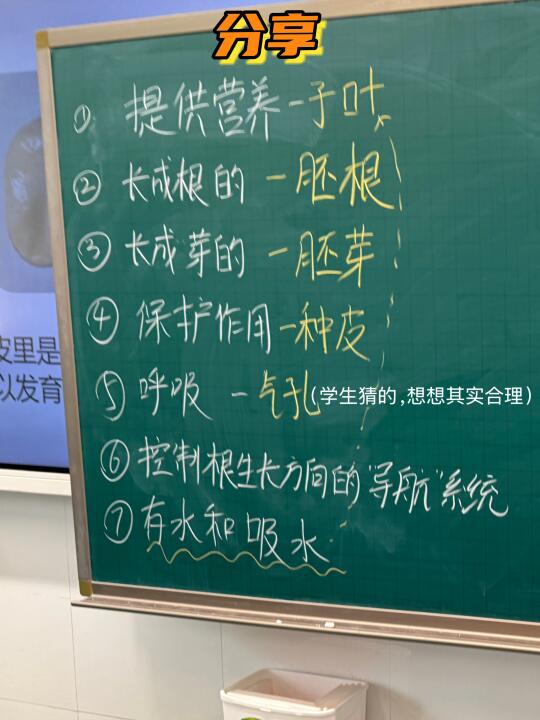 分享
① 提供营养-子叶
② 长成根的-胚根
③ 长成芽的-胚芽
④ 保护作用-种皮
⑤ 呼吸-气孔(学生猜的,想想其实合理)
⑥ 控制根生长方向的"导航"系统
⑦ 有水和吸水
皮里是
以发育